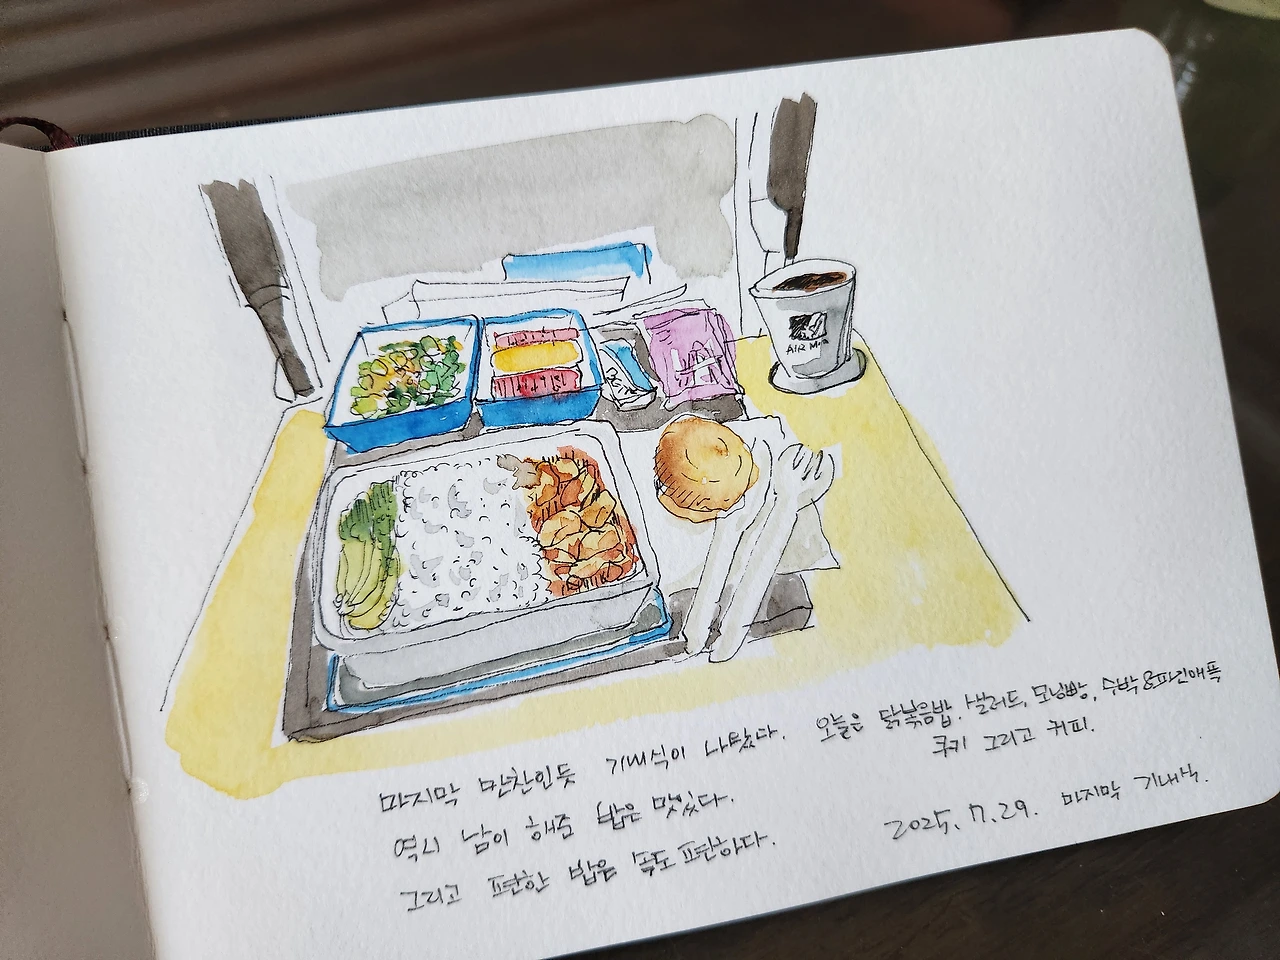 AIR
마지막 만찬인듯 기내식이 나왔다.
역시 남이 해준 밥은 맛있다.
그리고 편한 밥은 속도 편하다.
오늘은 닭볶음밥. 샐러드, 모닝빵, 수박&파인애플
쿠키 그리고 커피.
2025. 7. 29. 마지막 기내식.